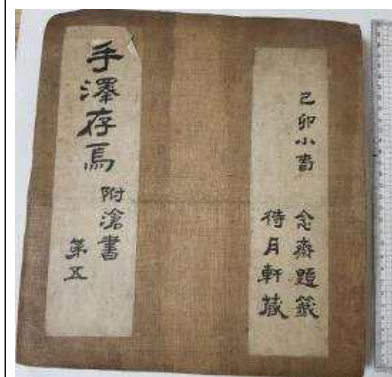 己卯小旾 念齋題籤
待月軒藏
手澤存焉
附滄書
第五